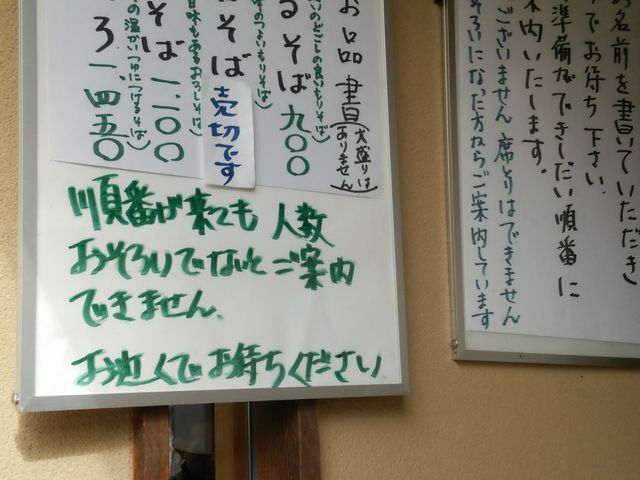 お品書(大盛りはありません)
るそば 九〇〇
いのどごしの良いもりそば)
そば
売切です
そば 一、一〇〇
甘味もあるおろしそば)
ろ 一、四五〇
の温かいつゆにつけるそば)
順番が来ても 人数
おそろいでないとご案内
できません。
お近くでお待ちください
お名前を書いていただき
でお待ち下さい。
準備ができしだい順番に
案内いたします。
ございません 席とりはできません
そろいになった方からご案内しています